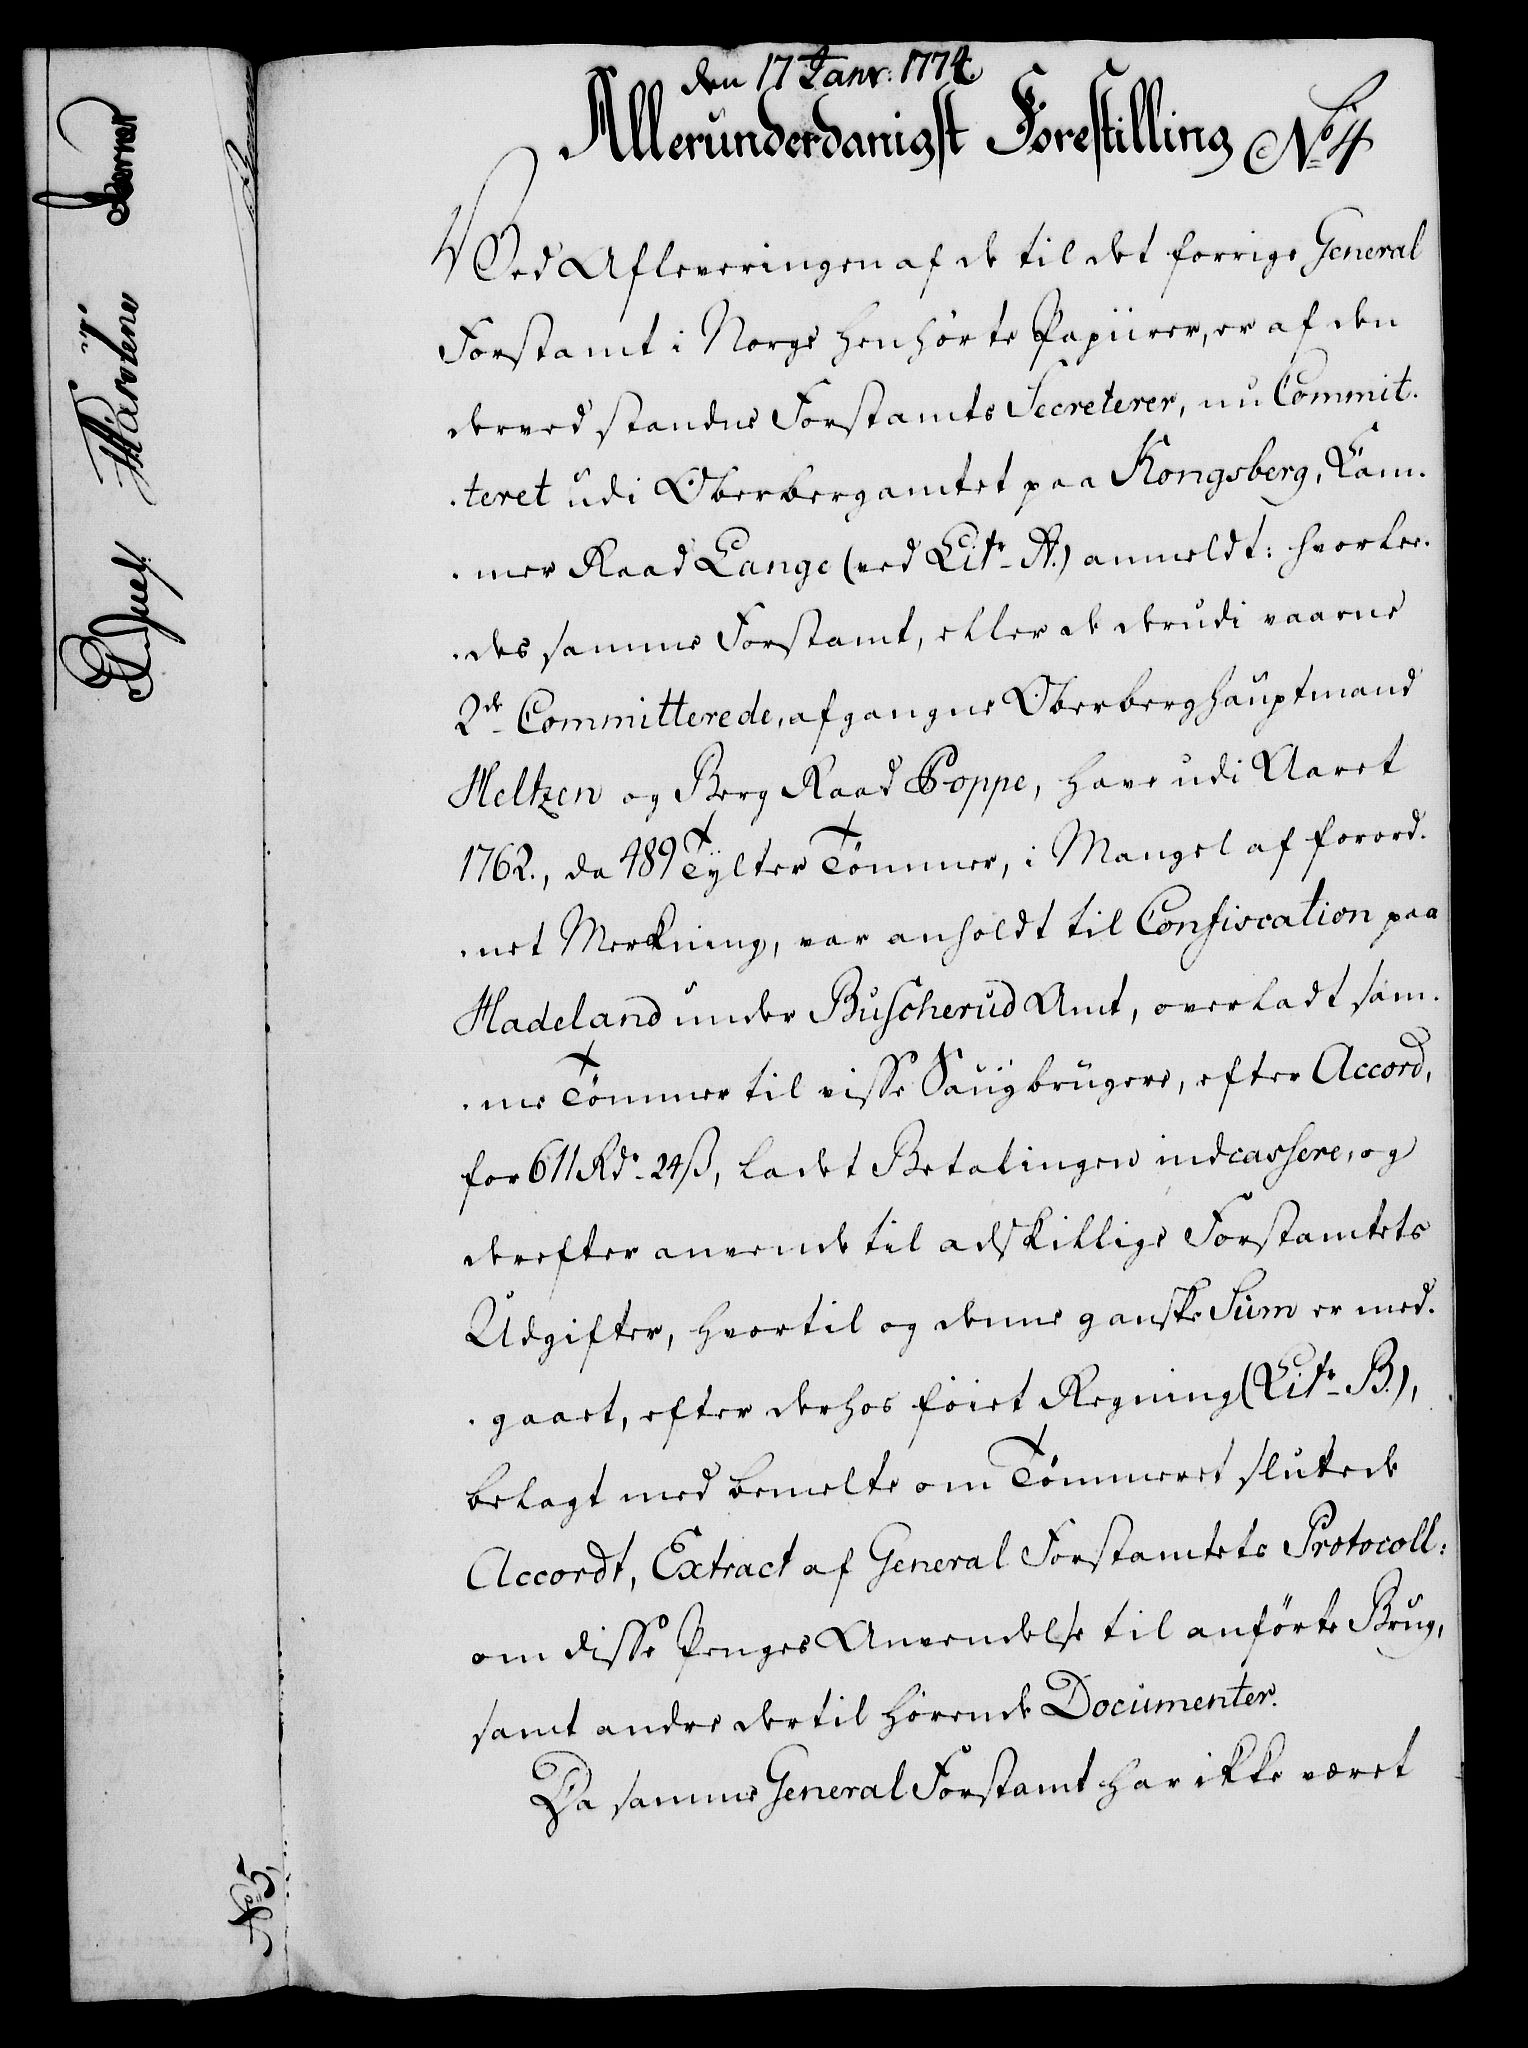 den 17 Janr: 1774.
Allerunderdanigst Forestilling No 4
Ved Afleveringen af de til det forrige General
Forstamt i Norge henhørte Papiirer, er af den
derved standne Forstamts Secreterer, nu Commit.
.teret udi Oberbergamtet paa Kongsberg, Kam.
.mer Raad Lange (ved Litr. A.) anmeldt: hvorle.
.des samme Forstamt, eller de derudi vaarne
2de Committerede, afgangne Oberberghauptmand
Heltzen og Berg Raad Poppe, have udi Aaret
1762., da 489 Tylter Tømmer, i Mangel af forord.
.net Merkning, var anholdt til Confiscation paa
Hadeland under Buscherud Amt, overladt sam.
.me Tømmer til visse Saugbrugere, efter Accord,
for 611 Rdr. 24 ß, ladet Betalingen indcassere, og
derefter anvende til adskillige Forstamtets
Udgifter, hvortil og denne ganske Sum er med.
.gaaet, efter derhos føiet Regning (Litr. B.),
belagt med bemelte om Tømmeret sluttede
Accordt, Extract af General Forstamtets Protocoll:
om disse Penges Anvendelse til anførte Brug,
samt andre dertil hørende Documenter.
Da samme General Forstamt har ikke været
No 5